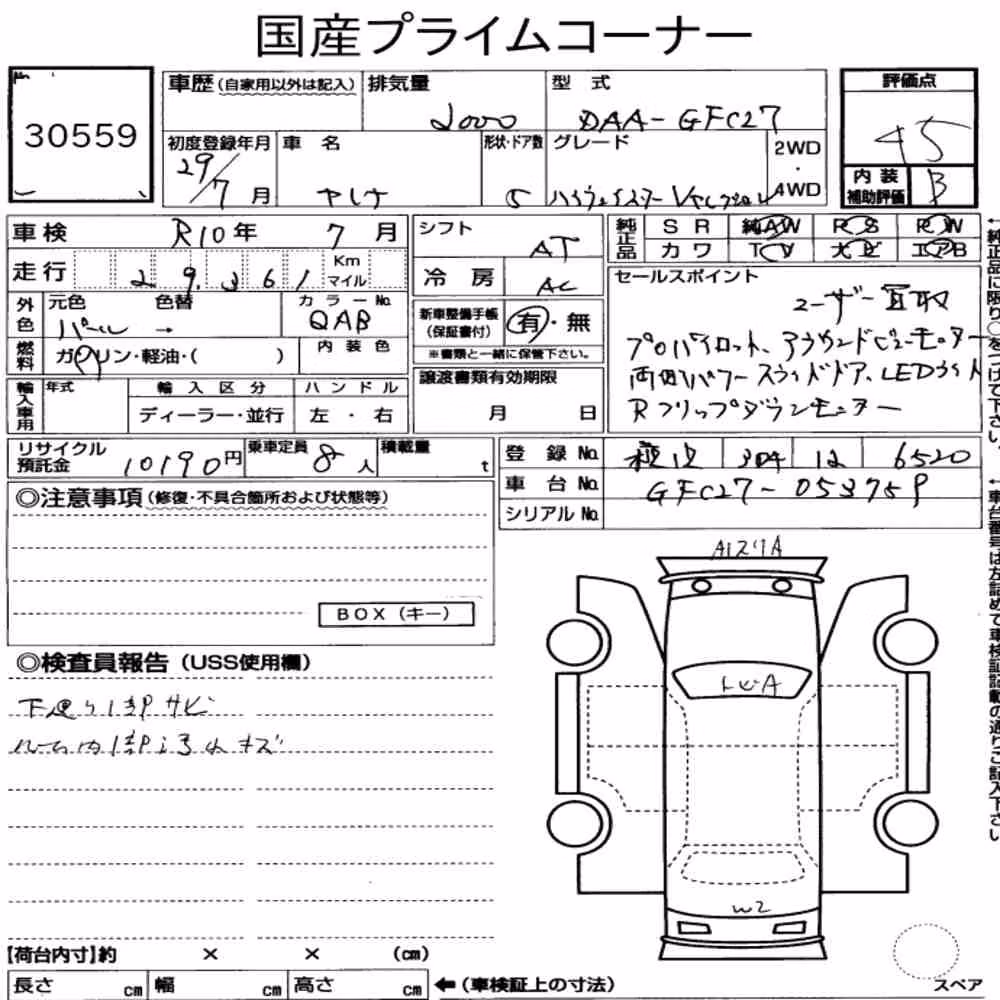 国産プライムコーナー
№ 30559
車歴(自家用以外は記入) 排気量 2000 型式 DAA-GFC27 評価点 4.5
初度登録年月 29/7月 車名 セレナ 形状・ドア数 5 グレード ハイウェイスター 2WD・4WD 内装補助評価 B
車検 R10年 7月 シフト AT 純正品 SR 純AW PS PW
カワ TV エアB
走行 29361 Km マイル 冷房 AC
セールスポイント
ユーザー買取
プロパイロット、アラウンドビューモニター
両側パワースライドドア、LEDライト
Rフリップダウンモニター
外色 元色 パール 色替 → カラーNo. QAB
新車整備手帳(保証書付) 有・無
※書類と一緒に保管下さい。
燃料 ガソリン・軽油・( ) 内装色
輸入車用 年式 輸入区分 ハンドル
ディーラー・並行 左・右
譲渡書類有効期限
月 日
リサイクル預託金 10190円 乗車定員 8人 積載量 t
登録No. 304 6520
車台No. GFC27-053759
シリアルNo.
◎注意事項(修復・不具合箇所および状態等)
BOX(キー)
◎検査員報告(USS使用欄)
下廻り1部サビ
ルーム内1部 キズ
A1スリA
トビA
W2
【荷台内寸】約 × × (cm)
長さ cm 幅 cm 高さ cm ←(車検証上の寸法)
スペア
←純正品に限り○をつけて下さい。
←車台番号は左詰めで車検証記載の通りご記入下さい